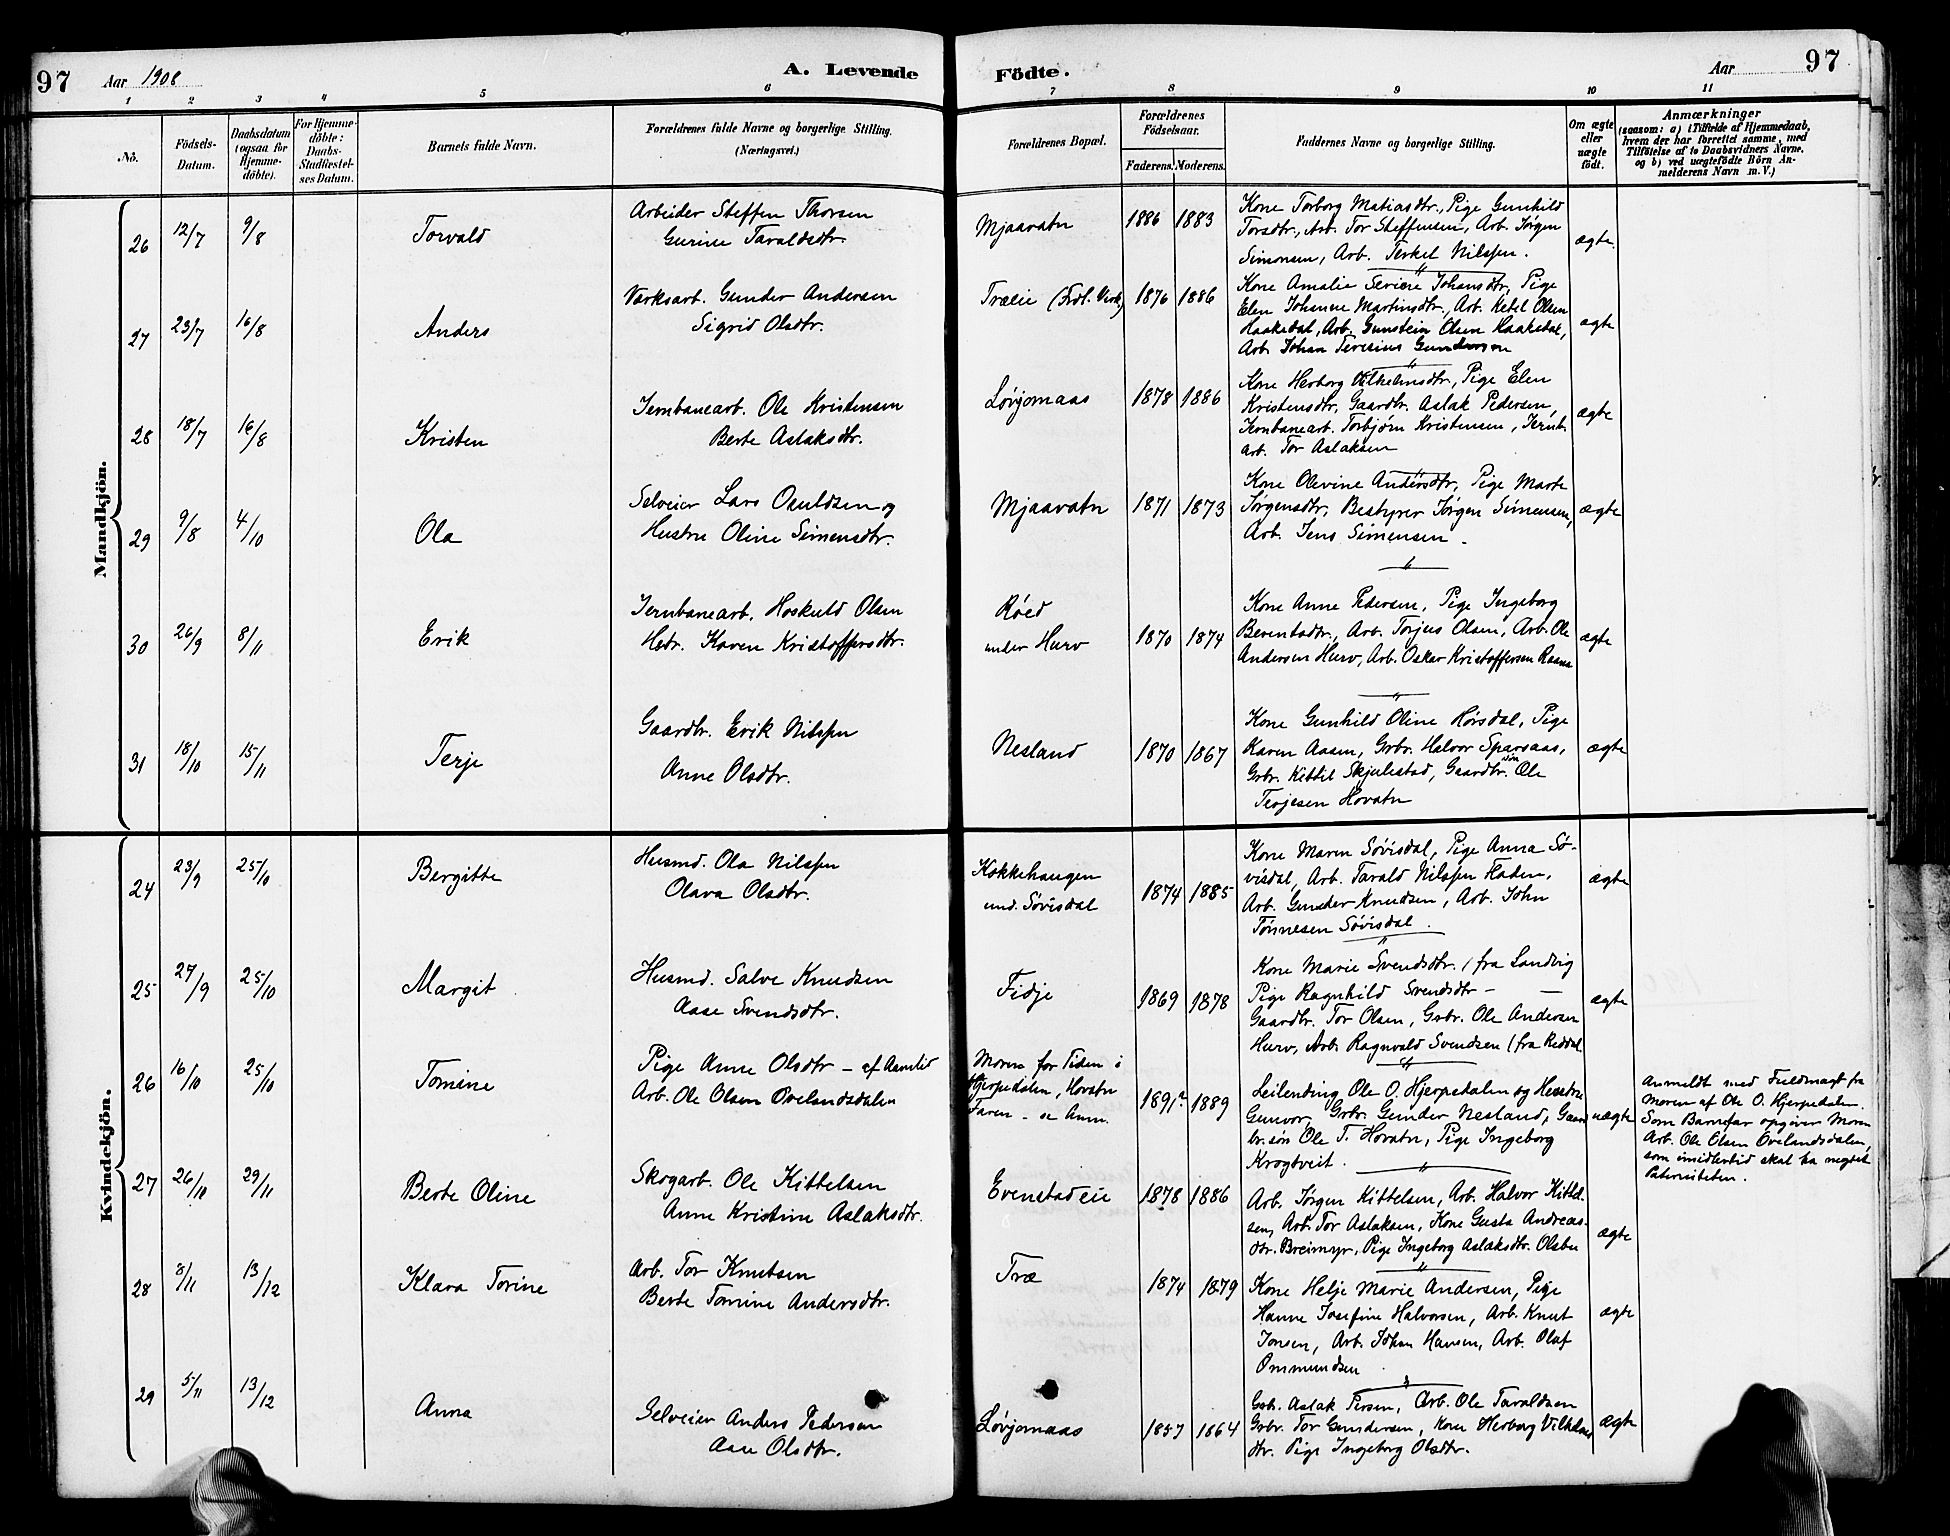 97 Aar 1908 A. Levende Födte. Aar 97
1 2 3 4 5 6 7 8 9 10 11
No. Födsels-Datum. Daabsdatum (ogsaa for Hjemme-döbte). For Hjemme-döbte: Daabs-Stadfæstel-ses Datum. Barnets fulde Navn. Forældrenes fulde Navne og borgerlige Stilling. (Næringsvei.) Forældrenes Bopæl. Forældrenes Födselsaar. Faderens. Moderens. Faddernes Navne og borgerlige Stilling. Om ægte eller uægte födt. Anmærkninger (saasom: a) i Tilfælde af Hjemmedaab, hvem der har forrettet samme, med Tilföielse af to Daabsvidners Navne, og b) ved uægtefödte Börn An-melderens Navn m. V.)
Mandkjön.
26 12/7 9/8 Torvald
Arbeider Steffen Thorsen
Gurine Taraldsdtr.
Mjaavatn 1886 1883
Kone Torborg Matiasdtr., Pige Gunhild
Torsdtr., Arb. Tor Steffensen, Arb. Jørgen
Simonsen, Arb. Terkel Nilssen.
ægte.
27 23/7 16/8 Anders
Værksarb. Gunder Andersen
Sigrid Olsdtr.
Træeie (Frol. Verk) 1876 1886
Kone Amalie Severe Johansdtr., Pige
Elen Johanne Martinsdtr., Arb. Ketel Olsen
Haakedal, Arb. Gunstein Olsen Haakedal,
Arb. Johan Severius Gundersen
ægte
28 18/7 16/8 Kristen
Jernbanearb. Ole Kristensen
Berte Aslaksdtr.
Løvjomaas 1878 1886
Kone Herborg Vilhelmsdtr., Pige Elen
Kristensdtr., Gaardbr. Aslak Pedersen,
Jernbanearb. Torbjørn Kristensen, Jernb.
arb. Tor Aslaksen
ægte
29 9/8 4/10 Ola
Selveier Lars Osuldsen og
Hustru Oline Simensdtr.
Mjaavatn 1871 1873
Kone Olevine Andersdtr., Pige Marte
Jørgensdtr., Bestyrer Jørgen Simensen,
Arb. Jens Simensen.
ægte
30 26/9 8/11 Erik
Jernbanearb. Hoskuld Olsen
Hstr. Karen Kristoffersdtr.
Røed
under Hurv 1870 1874
Kone Anne Pedersen, Pige Ingeborg
Berentsdtr., Arb. Torjus Olsen, Arb. Ole
Andersen Hurv, Arb. Oskar Kristoffersen Raana
ægte
31 18/10 15/11 Terje
Gaardbr. Erik Nilssen
Anne Olsdtr.
Nesland 1870 1867
Kone Gunhild Oline Hørsdal, Pige
Karen Aasen, Grbr. Halvor Sparsaas,
Grbr. Kittil Skjulestad, Gaardbr.søn Ole
Terjesen Hovatn
ægte
Kvindekjön.
24 23/9 25/10 Bergitte
Husmd. Ola Nilssen
Olava Olsdtr.
Kokkehaugen
und. Søvisdal 1874 1885
Kone Maren Søvisdal, Pige Anna Sø-
visdal, Arb. Tarald Nilssen Flaten,
Arb. Gunder Knudsen, Arb. John
Tønnesen Søvisdal.
ægte
25 27/9 25/10 Margit
Husmd. Salve Knudsen
Aase Svendsdtr.
Fidje 1869 1878
Kone Marie Svendsdtr. (fra Landvig
Pige Ragnhild Svendsdtr — —
Gaardbr. Tor Olsen, Grbr. Ole Andersen
Hurv, Arb. Ragnvald Svendsen (fra Reddal
ægte
26 16/10 25/10 Tomine
Pige Anne Olsdtr — af Aamlid
Arb. Ole Olsen Øvelandsdalen
Moren for Tiden i
Hjerpedalen, Hovatn
Faren - se Anm. 1891? 1889
Leilending Ole O. Hjerpedalen og Hustru
Gunvor, Grbr. Gunder Nesland, Gaard
br.søn Ole T. Hovatn, Pige Ingeborg
Krogtveit.
uægte
Anmeldt med Fuldmagt fra
Moren af Ole O. Hjerpedalen.
Som Barnefar opgiver Moren
Arb. Ole Olsen Øvelandsdalen,
som imidlertid skal ha negtet
Paterniteten.
27 26/10 29/11 Berte Oline
Skogarb. Ole Kittelsen
Anne Kristine Aslaksdtr.
Evenstadeie 1878 1886
Arb. Jørgen Kittelsen, Arb. Halvor Kittel-
sen, Arb. Tor Aslaksen, Kone Gusta Andreas-
dtr. Breimyr, Pige Ingeborg Aslaksdtr. Olsbu
ægte
28 8/11 13/12 Klara Torine
Arb. Tor Knutsen
Berte Tomine Andersdtr.
Træ 1874 1879
Kone Helje Marie Andersen, Pige
Hanne Josefine Halvorsen, Arb. Knut
Jonsen, Arb. Johan Hansen, Arb. Olaf
Ommundsen
ægte
29 5/11 13/12 Anna
Selveier Anders Pedersen
Aase Olsdtr.
Løvjomaas 1857 1864
Grb. Aslak Persen, Arb. Ole Taraldsen
Grbr. Tor Gundersen, Kone Herborg Vilhelms
dtr. Pige Ingeborg Olsdtr.
ægte